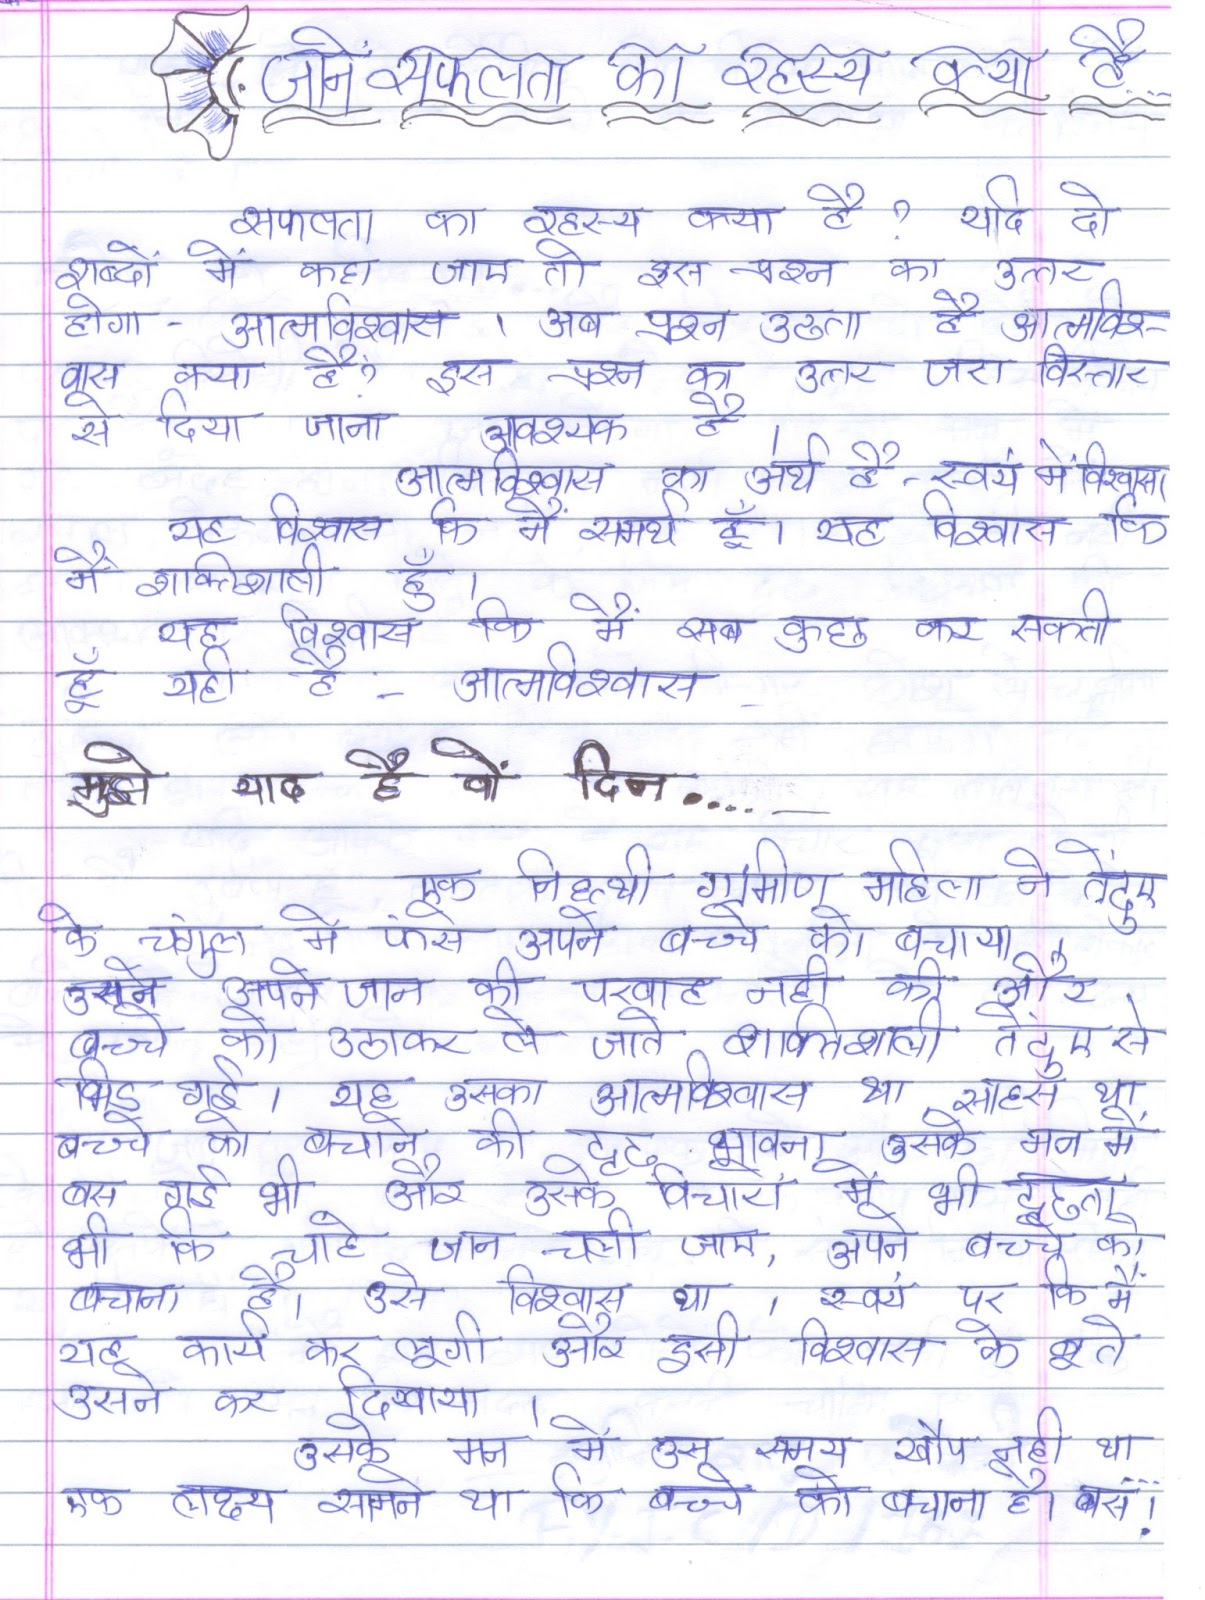 जानें सफलता का रहस्य क्या है...
सफलता का रहस्य क्या है ? यदि दो
शब्दों में कहा जाए तो इस प्रश्न का उत्तर
होगा - आत्मविश्वास । अब प्रश्न उठता है आत्मविश-
वास क्या है? इस प्रश्न का उत्तर जरा विस्तार
से दिया जाना आवश्यक है ।
आत्मविश्वास का अर्थ है - स्वयं में विश्वास।
यह विश्वास कि मैं समर्थ हूँ। यह विश्वास कि
मैं शक्तिशाली हूँ ।
यह विश्वास कि मैं सब कुछ कर सकती
हूँ यही है - आत्मविश्वास
मुझे याद है वों दिन..... __
एक निहत्थी ग्रामीण महिला ने तेंदुए
के चंगुल में फंसे अपने बच्चे को बचाया ।
उसने अपने जान की परवाह नही की और
बच्चे को उठाकर ले जाते शक्तिशाली तेंदुए से
भिड़ गई । यह उसका आत्मविश्वास था साहस था,
बच्चे को बचाने की दृढ़ भावना उसके मन में
बस गई थी और उसके विचारों में भी दृढ़ता
थी कि चाहे जान चली जाए, अपने बच्चे को
बचाना है। उसे विश्वास था , स्वयं पर कि मैं
यह कार्य कर लूंगी और इसी विश्वास के बूते
उसने कर दिखाया ।
उसके मन में उस समय खौप नही था
एक लक्ष्य सामने था कि बच्चे को बचाना है। बस...!